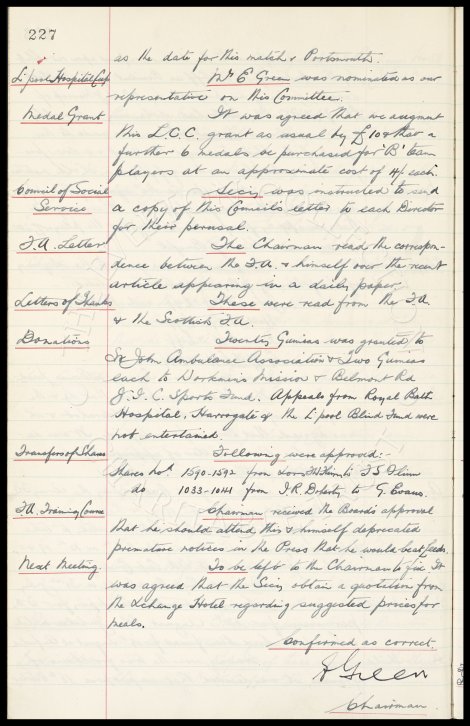 227
as the date for this match v Portsmouth.
L'pool Hospital Cup
Mr E Green was nominated as our
representative on this Committee.
Medal Grant
It was agreed that we augment
this L.C.C. grant as usual by £10 & that a
further 6 medals be purchased for 'B' team
players at an approximate cost of 4/- each.
Council of Social
Service
Secy was instructed to send
a copy of this Council's letter to each Director
for their perusal.
F.A. Letter
The Chairman read the correspon-
dence between the F.A. & himself over the recent
article appearing in a daily paper.
Letters of Thanks
These were read from the F.A.
& the Scottish F.A.
Donations
Twenty Guineas was granted to
St John Ambulance Association & Two Guineas
each to Workmens Mission & Belmont Rd
J.I.C. Sports Fund. Appeals from Royal Bath
Hospital, Harrogate & the L'pool Blind Fund were
not entertained.
Transfers of Shares
Following were approved:-
Shares Nos. 1590-1592 from to T S Flinn
do 1033-1041 from J.R. Doherty to G. Evans.
F.A. Training Course
Chairman received the Board's approval
that he should attend, this & himself deprecated
premature notices in the Press that he would be at
Next Meeting.
To be left to the Chairman to fix. It
was agreed that the Secy obtain a quotation from
the Exchange Hotel regarding suggested prices for
meals.
Confirmed as correct.
Green
Chairman.